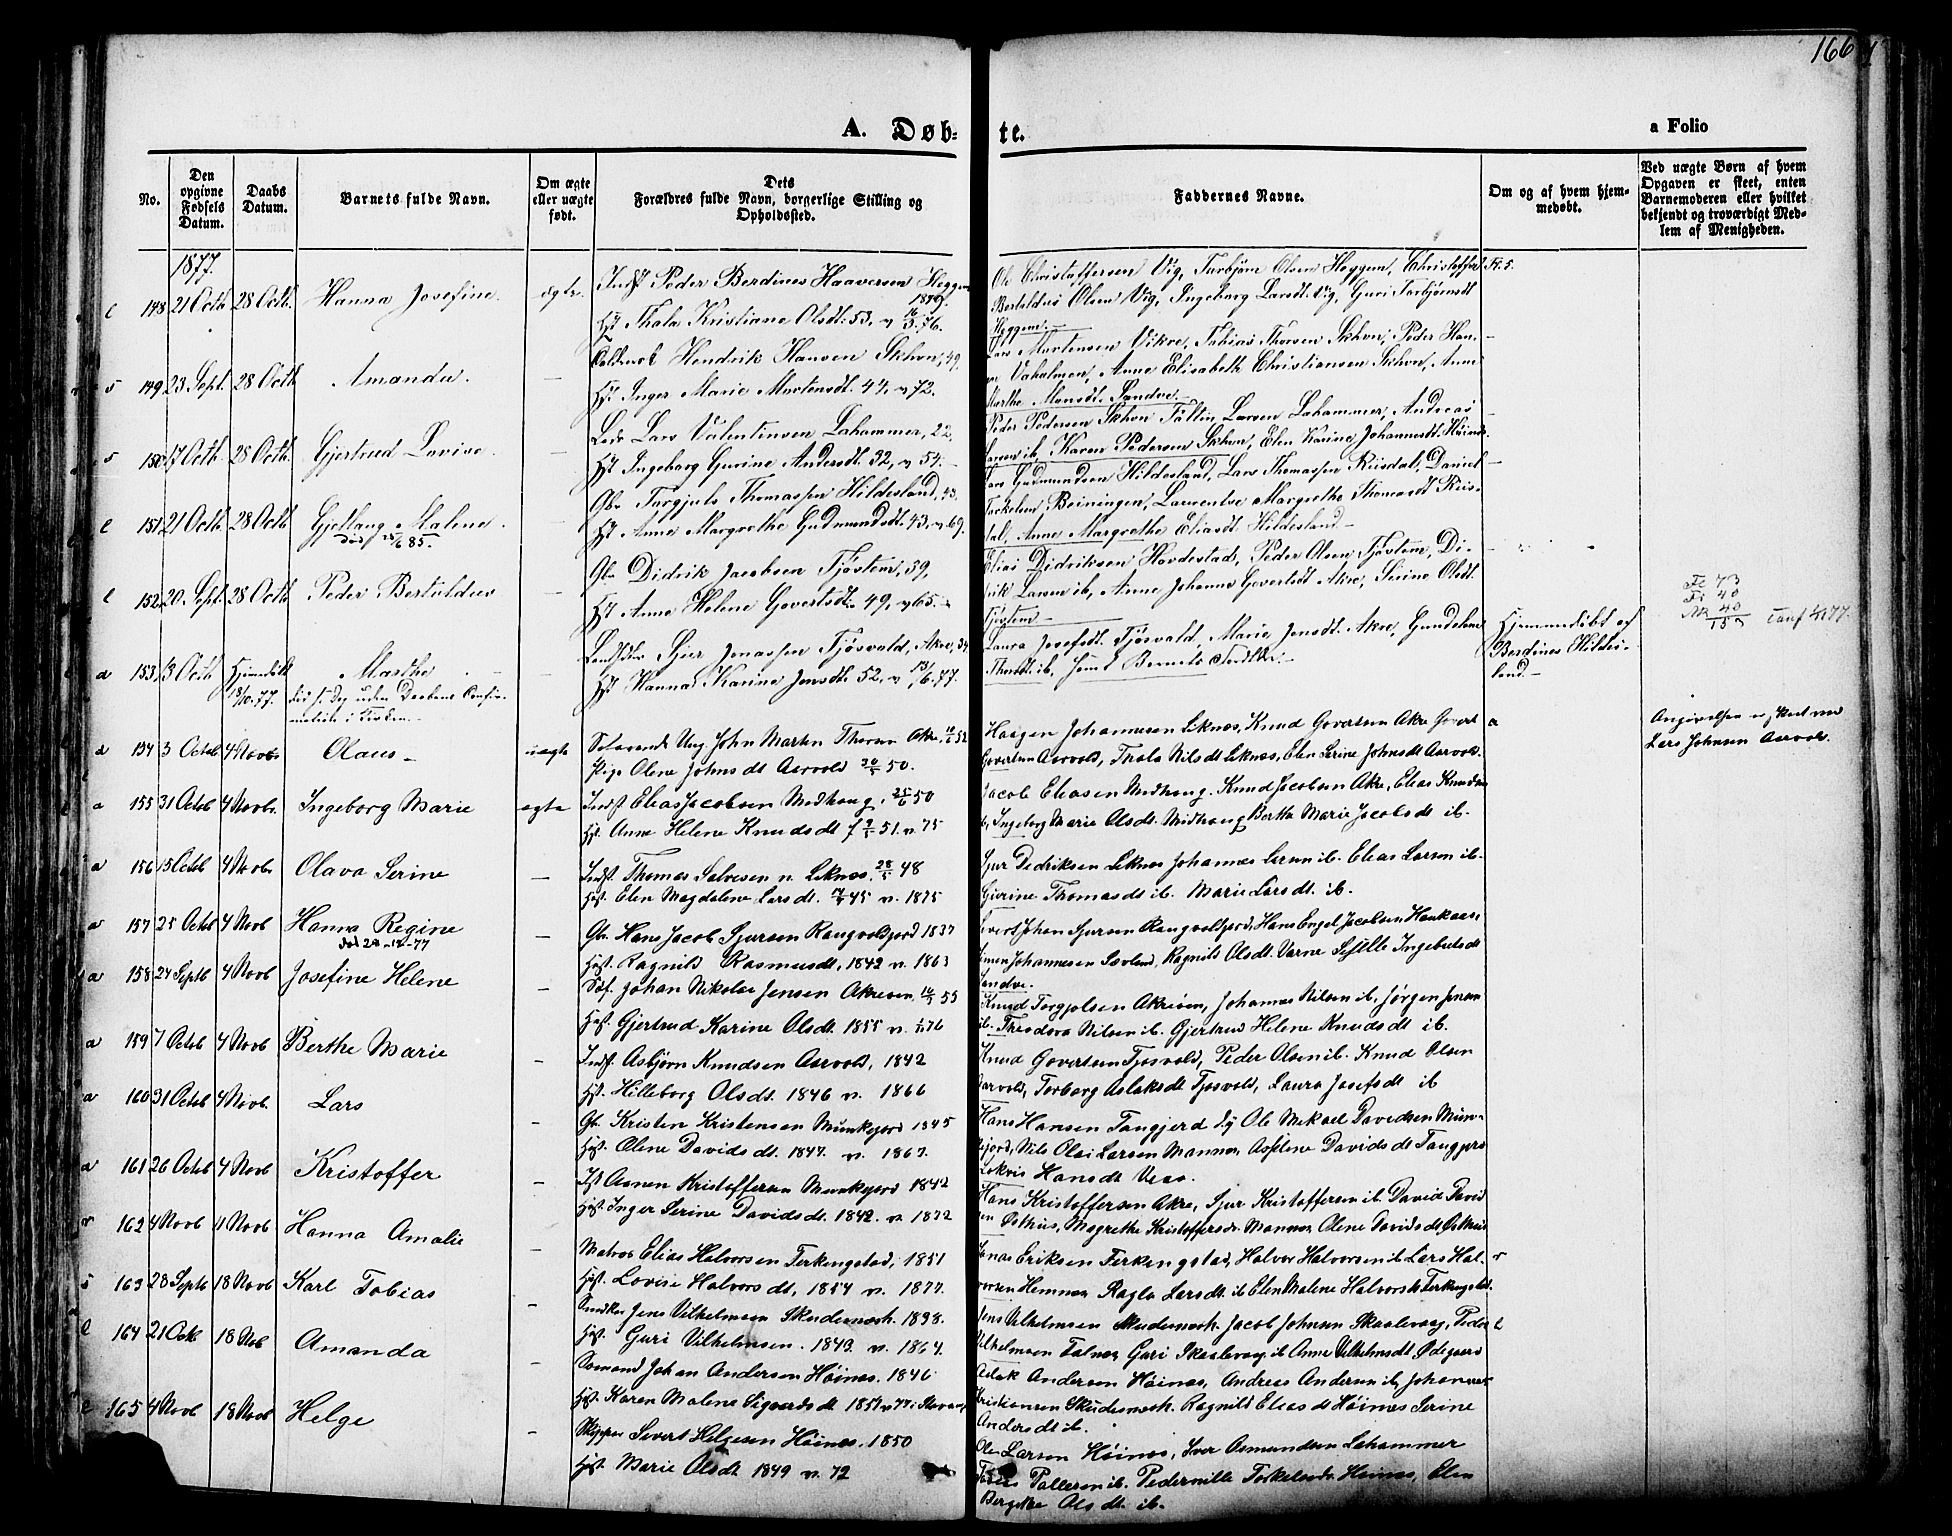 166
A. Døb-
te.
a Folio
No.
Den opgivne Fødsels Datum.
Daabs Datum.
Barnets fulde Navn.
Om ægte eller uægte født.
Dets Forældres fulde Navn, borgerlige Stilling og Opholdssted.
Faddernes Navne.
Om og af hvem hjemmedøbt.
Ved uægte Børn af hvem Opgaven er skeet, enten Barnemoderen eller hvilket bekjendt og troværdigt Medlem af Menigheden.
1877.
148 21 Octb 28 Octb. Hanna Josefine. ægte. Indst Peder Berdines Haaversen Heggem
Hst Thala Kristiane Olsdt: 53, v 76.
Ole Christoffersen Vig, Torbjørn Olsen Heggem, Christoffer
Olsen Vig, Ingeborg Larsdt. Vig, Guri Torbjørnsdt
Heggem.
149 23 Sept. 28 Octb Amanda. — Hendrik Hansen Skhvn, 49,
Hst Inger Marie Mortensdt. 44, v 72.
Lars Mortensen Vikre, Tobias Thorsen Skhvn, Peder Han-
Anne Elisabeth Christiansen Skhvn, Anne
Marthe Monsdt. Sandve.
150 17 Octb. 28 Octb. Gjertrud Lovise. — Lars Valentinsen Lahammer, 22,
Hst Ingeborg Gurine Andersdt. 32, v 54.
Peder Pedersen Skhvn Tøllin Larsen Lahammer, Andreas
Larsen ib, Karen Pedersen Skhvn, Elen Karine Johannesdt.
151 21 Octb 28 Octb Gjetlaug Malene. — Gbr Torgjuls Thomassen Hildesland, 43,
død 25/6 85.
Hst Anne Margrethe Gudmundsdt. 43, v. 69.
Lars Gudmundsen Hildesland, Lars Thomassen Riisdal, Daniel
Torkelsen Beiningen, Laurentse Margrethe Thomasdt Riis-
dal, Anne Margrethe Eliasdt. Hildesland
152 20. Sept. 28 Octb Peder Bertuldus — Gbr Didrik Jacobsen Tjøstem, 39,
Hst Anne Helene Govertsdt. 49, v 65.
Elias Didriksen Hovdestad, Peder Olsen Tjøstem, Di-
rik Larsen ib, Anne Johanna Govertsdt Akre, Serine Olsdt.
Tjøstem
153 3 Octb Hjemedøbt 13/10.77. Marthe — Sjur Jonassen Tjøsvold, Akre, 34
død s. Dag uden Daabens Confir-
mation i Kirken.
Hst Hanna Karine Jensdt. 52, v 77.
Laura Josefsdt. Tjøsvald, Marie Jensdt. Akre, Gundelene
Thorsdt. ib,
Hjemmedøbt af
Berdines Hildes-
land.
154 3 Octob 4 Novbr Olaus uægte Ung. John Martin Thorsen Akre, 52
Pige Olene Johnsdt Aarvold 50.
Haagen Johannesen Liknes, Knud Govertsen Akre Govert
Govertsen Aarvold, Thala Nilsdt Liknes, Elen Serine Johnsdt Aarvold.
Angivelsen er skeet ved
Lars Johnsen Aarvold.
155 31 Octob 4 Novbr. Ingeborg Marie ægte Indst Elias Jacobsen Medhaug, 50
Hst. Anne Helene Knudsdt f 51. v. 75
Jacob Eliasen Medhaug. Knud Jacobsen Akre, Elias Knudsen
ib, Ingeborg Marie Olsdt. Medhaug Berthe Marie Jacobsdt ib.
156 15 Octob 4 Novbr Olava Serine — Indst. Thomas Salvesen n. Liknes. 28/5 48
Hst. Elen Magdalene Larsdt. 45 v. 1875
Sjur Didriksen Liknes Johannes Larsen ib. Elias Larsen ib.
Gjerine Thomasdt ib. Marie Larsdt. ib.
157 25 Octob 4 Novb Hanna Regine — Gbr Hans Jacob Sjursen Rangvoldjord 1837
død 28-12-77
Hst. Ragnild Rasmusdt, 1842 v. 1863
Sivert Johan Sjursen Rangvoldjord, Hans Engel Jacobsen Haukaas,
Simen Johannesen Sævland, Ragnild Olsdt. Varne Sifille Ingebretsdt
Sandve.
158 24 Septb 4 Novb Josefine Helene — Johan Nikolai Jensen Akreøen, 55
Hst. Gjertrud Karine Olsdt. 1855 v. 76
Knud Torgjolsen Akreøen, Johannes Nilsen ib, Jørgen Jensen
ib. Theodora Nilsen ib. Gjertrud Helene Knudsdt ib.
159 7 Octob 4 Novb Berthe Marie — Indst. Asbjørn Knudsen Aarvold, 1842
Hst. Hilleborg Olsdt. 1846 v. 1866
Knud Govertsen Tjøsvold, Peder Olsen ib. Knud Olsen
Aarvold, Torborg Aslaksdt Tjøsvold, Laura Josefsdt ib
160 31 Octob 4 Novb. Lars — Gbr. Kristen Kristensen Munkejord 1845
Hst. Olene Davidsdt. 1847. v. 1867.
Hans Hansen Tangjerd Ole Mikael Davidsen Munke-
jord, Nils Olai Larsen Mannes, Davidsdt Tangjerd
Hansdt
161 26 Octob 4 Novb Kristoffer — Aanen Kristoffersen Munkejord 1842
Hst. Inger Serine Davidsdt. 1842. v. 1872
Hans Kristoffersen Akre, Sjur Kristoffersen ib. David David-
sen Østhus, Magrethe Kristoffersdt. Mannes, Olene Davidsdt Østhus
162 4 Novb 11 Novb Hanna Amalie — Matros Elias Halvorsen Ferkingstad, 1851
Hst. Lovise Halvorsdt, 1854 v. 1877.
Jonas Eriksen Ferkingstad, Halvor Halvorsen ib Lars Hal-
vorsen Hemnes Ragla Larsdt. ib Elen Malene Halvorsdt. Ferkingstad.
163 28 Septb 18 Novb Karl Tobias — Jens Vilhelmsen Skudesnesh. 1838.
Hst. Guri Vilhelmsen. 1843. v. 1864.
Jens Vilhelmsen Skudesnesh. Jacob Johnsen Skaalevaag, Peder
Vilhelmsen Falnes Guri Skaalevaag ib Anne Vilhelmsdt Ødegaard
164 21 Octb 18 Nob Amanda — Sømand Johan Andersen Høines. 1846
Hst. Karen Malene Sigvardsdt 1851 v 77 i Stavang.
Aslak Andersen Høines, Andreas Andersen ib, Johannes
Kristiansen Skudesnesh. Ragnild Eliasdt Høines Serine
Andersdt ib.
165 4 Novb 18 Novb Helge — Skipper Sivert Helgesen Høines. 1850
Hst. Marie Olsdt 1849 v. 72
Ole Larsen Høines, Iver Osmundsen Lahammer
Pallesen ib. Pedernille Torkelsdt. Høines, Elen
Bergitte Olsdt. ib.